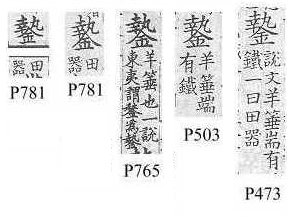 田
器
P781
田
器
P781
羊箠也一說
東夷謂爲
P765
羊箠端
有鐵
P503
說文羊箠耑有
鐵一曰田器
P473